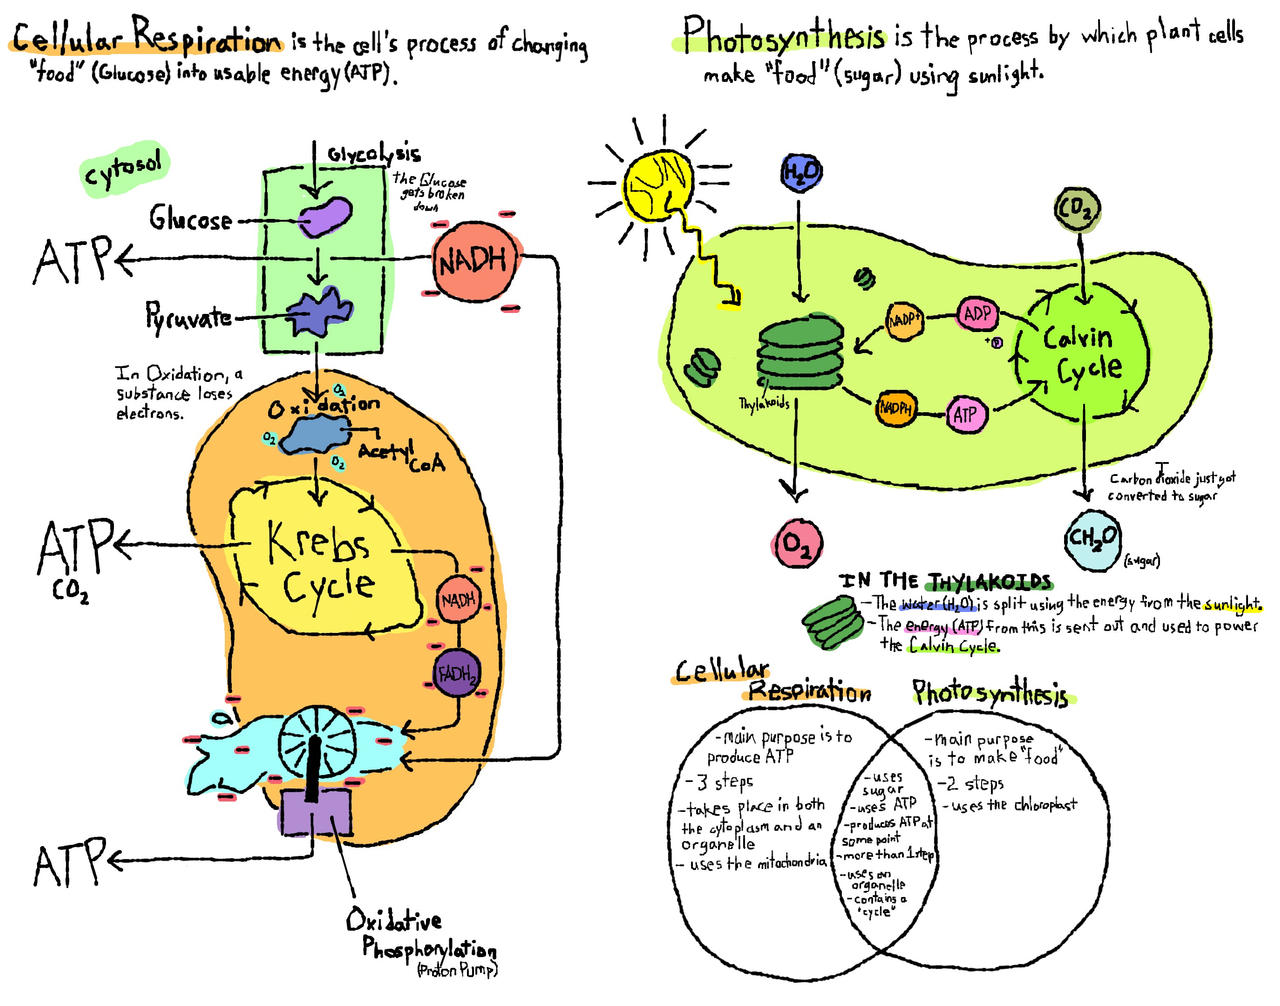 Cellular Respiration is the cell's process of changing
"food" (Glucose) into usable energy (ATP).
cytosol
Glycolysis
the Glucose
gets broken
down
Glucose
ATP
NADH
Pyruvate
In Oxidation, a
substance loses
electrons.
O2
Oxidation
O2
Acetyl
CoA
O2
Krebs
Cycle
ATP
CO2
NADH
FADH2
ATP
Oxidative
Phosphorylation
(Proton Pump)
Photosynthesis is the process by which plant cells
make "food" (sugar) using sunlight.
SUN
H2O
CO2
NADP+
ADP
+P
Calvin
Cycle
Thylakoids
NADPH
ATP
Carbon dioxide just got
converted to sugar
O2
CH2O
(sugar)
IN THE THYLAKOIDS
- The water (H2O) is split using the energy from the sunlight.
- The energy (ATP) from this is sent out and used to power
the Calvin Cycle.
Cellular
Respiration
Photosynthesis
- main purpose is to
produce ATP
- 3 steps
- takes place in both
the cytoplasm and an
organelle
- uses the mitochondria
- uses
sugar
- uses ATP
- produces ATP at
some point
- more than 1 step
- uses an
organelle
- contains a
"cycle"
- main purpose
is to make "food"
- 2 steps
- uses the chloroplast